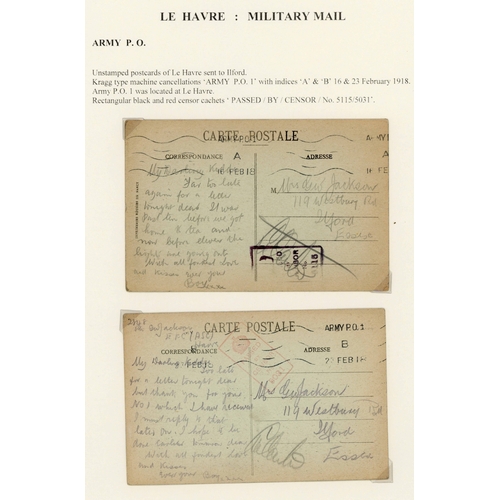 LE HAVRE : MILITARY MAIL
ARMY P. O.
Unstamped postcards of Le Havre sent to Ilford.
Kragg type machine cancellations 'ARMY P.O. 1' with indices 'A' & 'B' 16 & 23 February 1918.
Army P.O. 1 was located at Le Havre.
Rectangular black and red censor cachets ' PASSED / BY / CENSOR / No. 5115/5031'.
CARTE POSTALE
CORRESPONDANCE
A
ADRESSE
FEB 18
My
Far too late
again for a letter
tonight dear. It was
before we got
home to tea and
now before eleven the
lights are going out
With all fondest love
and Kisses your
M
Mrs Jackson
119 Westbury Rd
Ilford
Essex
CARTE POSTALE
ARMY P.O. 1
CORRESPONDANCE
ADRESSE
B
FEB 18
My Darling
Too late
for a letter tonight dear
but thank you for your
No 1 which I have received
I must reply to that
later on. I hope to be
dear
With all fondest love
and Kisses
Ever your
Mrs Jackson
119 Westbury Rd
Ilford
Essex